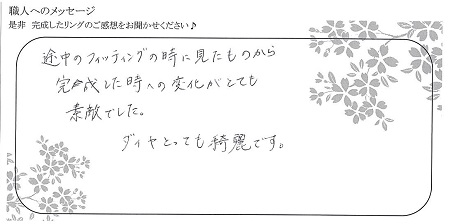 職人へのメッセージ
是非 完成したリングのご感想をお聞かせください♪
途中のフィッティングの時に見たものから
完成した時への変化がとても
素敵でした。
ダイヤとっても綺麗です。